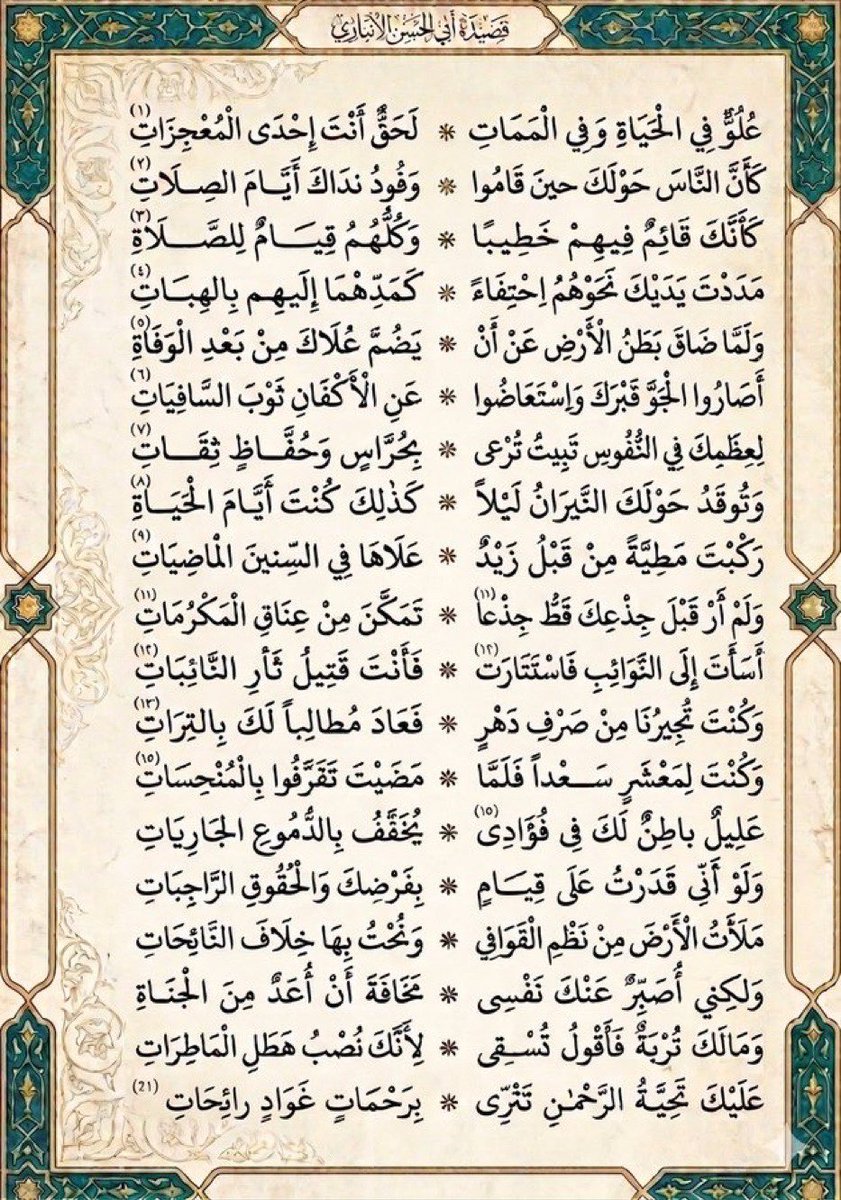 قَصِيدَةُ أَبِي الحَسَن الأنبَارِي
عُلُوٌّ فِي الْحَيَاةِ وَفِي الْمَمَاتِ * لَحَقٌّ أَنْتَ إِحْدَى الْمُعْجِزَاتِ (١)
كَأَنَّ النَّاسَ حَوْلَكَ حينَ قَامُوا * وَفُودُ نَدَاكَ أَيَّـامَ الصِـلَاتِ (٢)
كَأَنَّكَ قَائِمٌ فِيهِمْ خَطِيبًا * وَكُلُّهُمُ قِيَـــامٌ لِلصَّـــلَاةِ (٣)
مَدَدْتَ يَدَيْكَ نَحَوْهُمُ اِحْتِفَاءً * كَمَدِّهْمَا إِلَيهِم بِالهِبـَاتِ (٤)
وَلَمَّا ضَاقَ بَطَنُ الْأَرْضِ عَنْ أَنْ * يَضُمَّ عُلَاكَ مِنْ بَعْدِ الْوَفَاةِ (٥)
أَصَارُوا الْجَوَّ قَبْرَكَ وَاِسْتَعَاضُوا * عَنِ الْأَكْفَانِ ثَوْبَ السَّافِيَاتِ (٦)
لِعِظَمِكَ فِي النُّفُوسِ تَبِيتُ تُرْعى * بِحُرَّاسٍ وَحُفَّــاظٍ ثِقَــاتِ (٧)
وَتُوقَدُ حَوْلَكَ النَّيرَانُ لَيْلاً * كَذٰلِكَ كُنْتَ أَيَّـامَ الْحَيَـاةِ (٨)
رَكْبْتَ مَطِيَّةً مِنْ قَبْلُ زَيْدٌ * عَلَاهَا فِي السِّنِينَ الْمَاضِيَاتِ (٩)
وَلَمْ أَرْ قَبْلَ جِذْعِكَ قَطُّ جِذْعاً (١١) * تَمَكَّنَ مِنْ عِنَاقِ الْمَكْرُمَاتِ (١١)
أَسَأَتَ إِلَى النَّوَائِبِ فَاسْتَتَارَت (١٢) * فَأَنْتَ قَتِيلُ ثَأرِ النَّائِبَاتِ (١٢)
وَكُنْتَ تُجِيرُنَا مِنْ صَرْفِ دَهْرٍ * فَعَادَ مُطالِباً لَكَ بِالتِرَاتِ (١٣)
وَكُنْتَ لِمَعْشَرٍ سَــعْداً فَلَمَّا * مَضَيْتَ تَفَرَّفُوا بِالْمُنْحِسَاتِ (١٥)
عَلِيلٌ باطِنٌ لَكَ فِى فُؤَادِى (١٥) * يُخَقَّفُ بِالدُّمُوعِ الجَارِيَاتِ
وَلَوْ أَنِّي قَدَرْتُ عَلَى قِيَـامٍ * بِفَرْضِكَ وَالْحُقُوقِ الرَّاجِبَاتِ
مَلَأَتُ الْأَرْضَ مِنْ نَظْمِ الْقَوَافِي * وَنُحْتُ بِهَا خِلَافَ النَّائِحَاتِ
وَلكِني أُصَبِّرٌ عَنْكَ نَفْسِى * مَخَافَةَ أَنْ أُعَدٌ مِنَ الْجْنَـاةِ
وَمَالَكَ تُرْبَةٌ فَأَقْولُ تُسْـقِى * لِأَنَّكَ نُصْبُ هَطَلِ الْمَاطِرَاتِ
عَلَيْكَ تَحِيَّـةُ الرَّحْمٰنِ تَتْرِّى * بِرَحْمَاتٍ غَوَادٍ رائِحَاتِ (21)